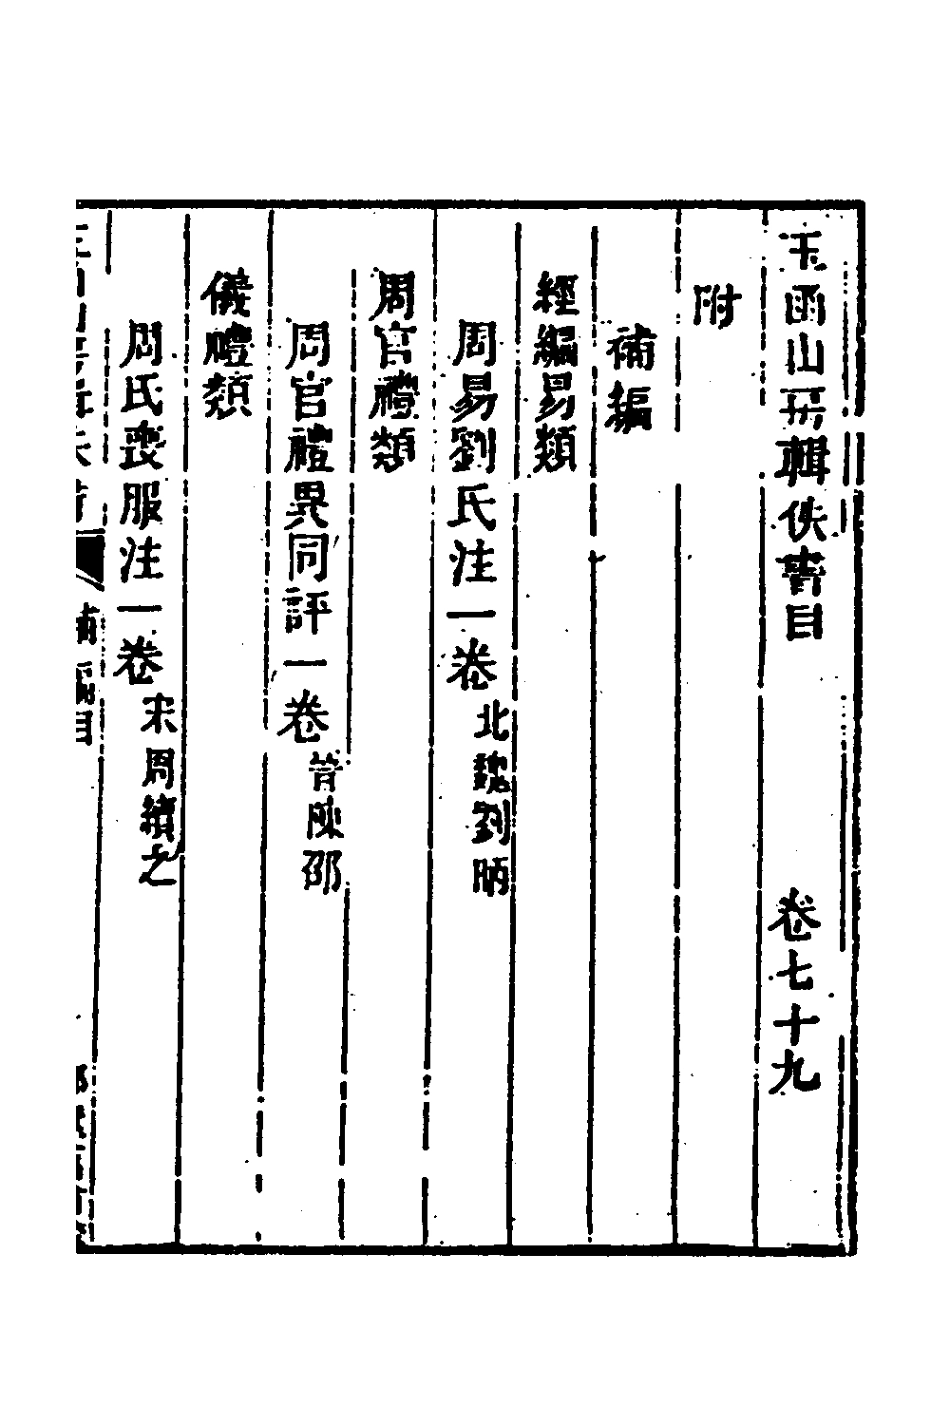 玉函山房輯佚書目　卷七十九
附
補編
經編易類
周易劉氏注一卷北魏劉昞
周官禮類
周官禮異同評一卷晉陳邵
儀禮類
周氏喪服注一卷宋周續之
補編目